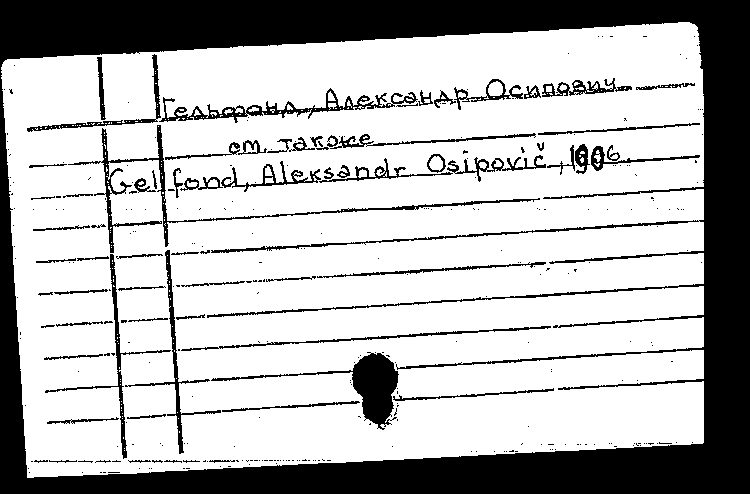 Гельфанд, Александр Осипович
см. также
Gelfond, Aleksandr Osipovič, 1906.